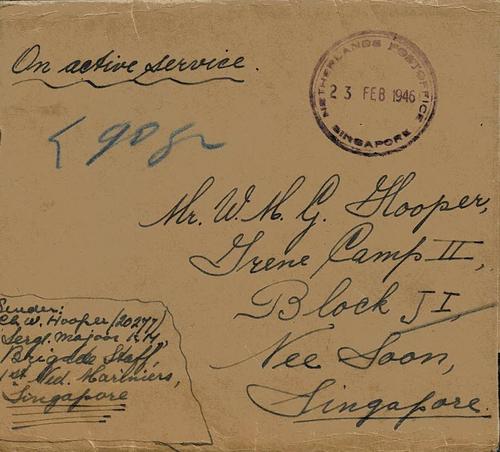 On active service.
NETHERLANDS POSTOFFICE
23 FEB 1946
SINGAPORE
90 gr
Mr. W. M. G. Hooper,
Irene Camp II,
Block J I,
Nee Soon,
Singapore.
Sender:
Ch. W. Hooper (20277)
Sergt. Majoor
Brigade Staff,
1st Ned. Mariniers,
Singapore